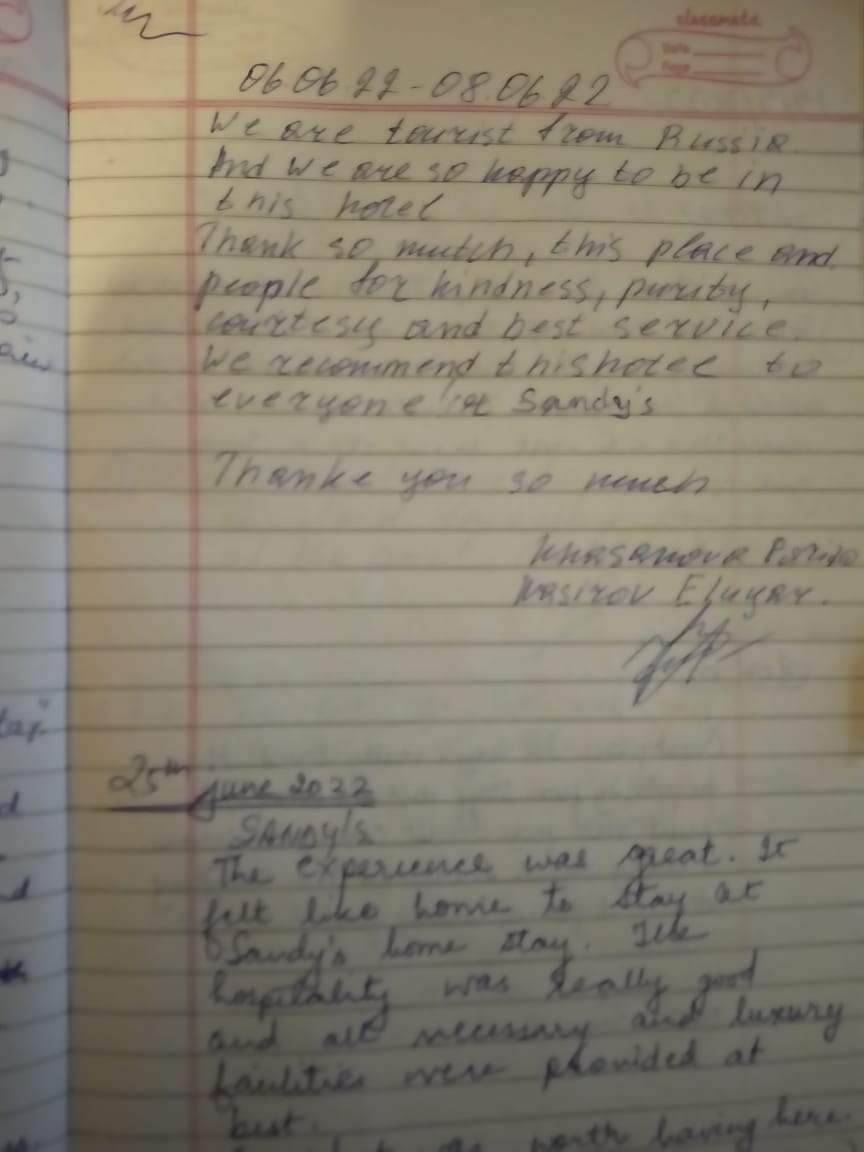 classmate
Date
Page
06.06.22-08.06.22
We are tourist from Russia.
And we are so happy to be in
this hotel
Thank so mutch, this place and
people for kindness, purity,
courtesy and best service.
We recommend this hotel to
everyone at Sandy's
Thanke you so much
Khasanova
Nasirov
25th June 2022
SANDY'S
The experience was great. It
felt like home to stay at
Sandy's home stay. The
hospitality was really good
and all necessary and luxury
facilities were provided at
best.
worth having here